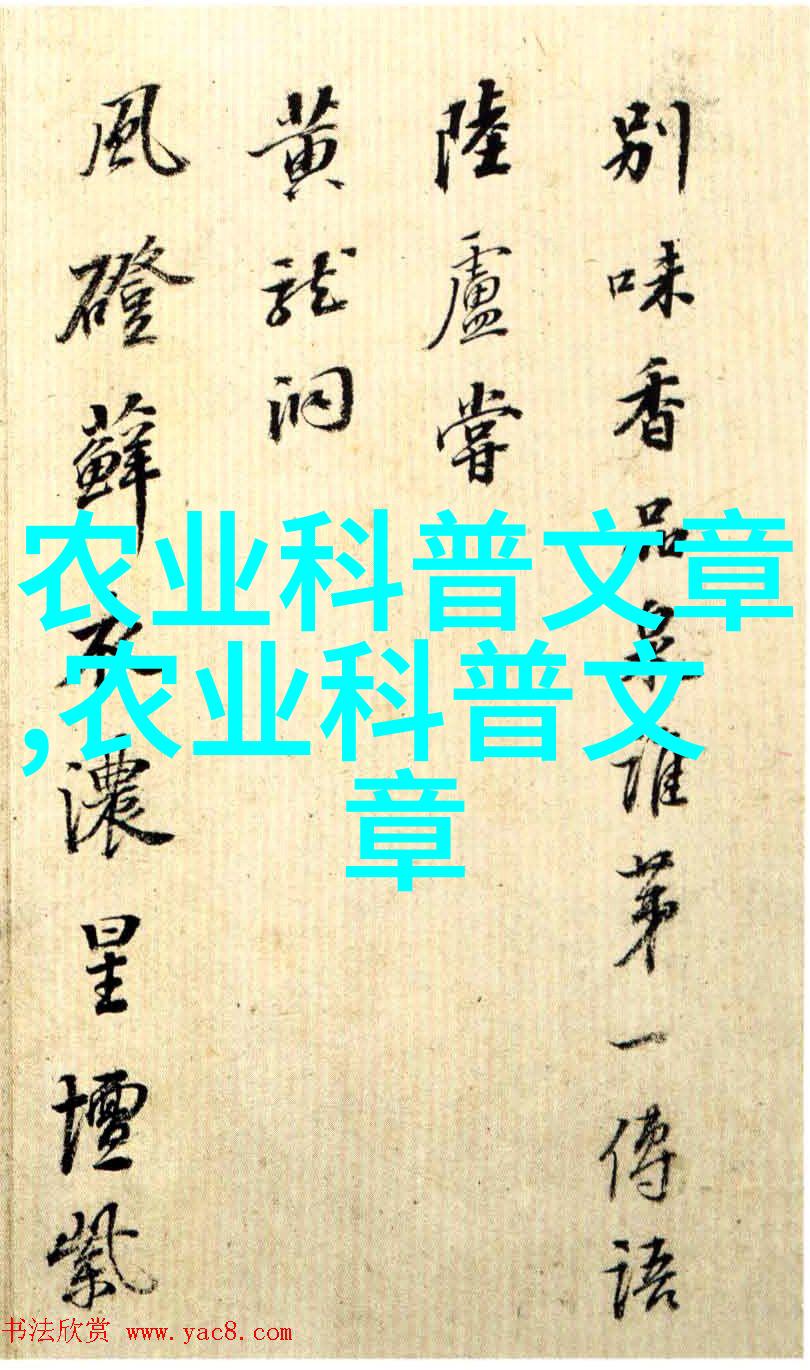 別味香品泉誰苐一傳語
陸盧嘗
黄龍洞
風磴蘚衣濃星壇紫
农业科普文章
,农业科普文
章
书法欣赏 www.yac8.com